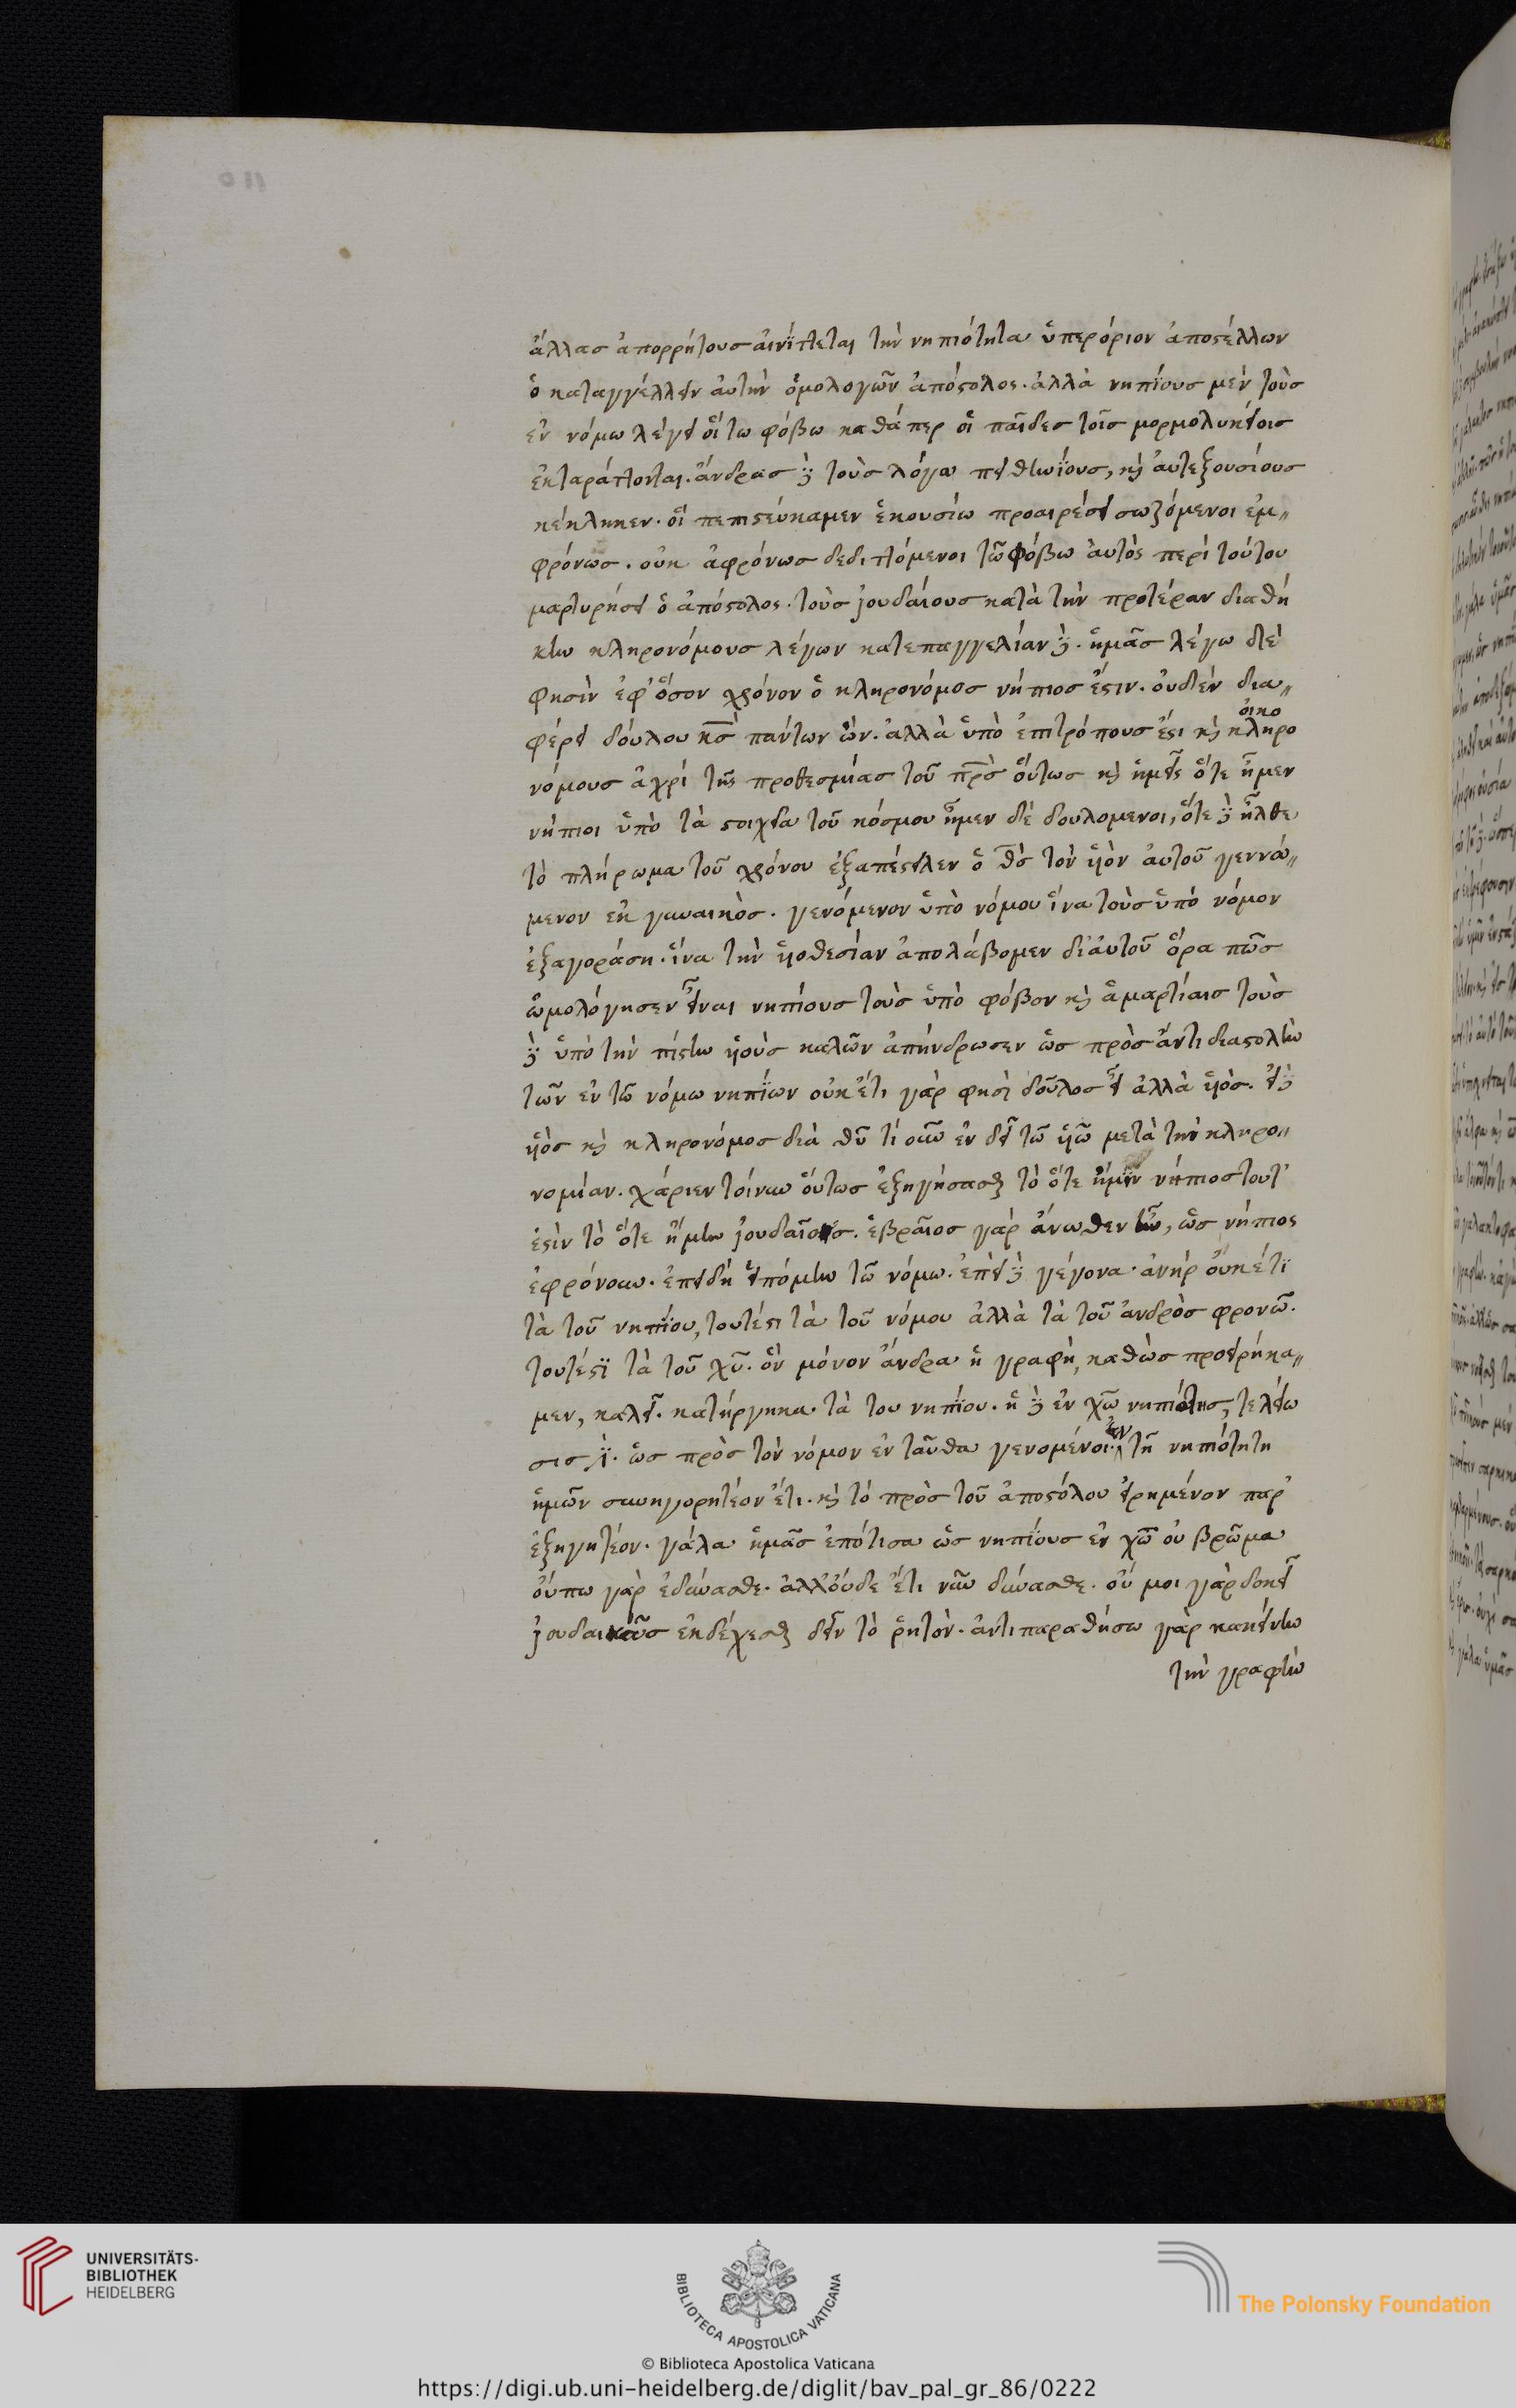 ἄλλασ ἀπορρήτουσ αἰνίττεται τὴν νηπιότητα ὑπερόριον ἀποστέλλων
ὁ καταγγέλλειν ἀυτὴν ὁμολογῶν ἀπόστολος. ἀλλὰ νηπίους μὲν τοὺσ
ἐν νόμω λέγει οἵ τω φόβω καθάπερ οἱ παῖδεσ τοῖσ μορμολυκείοισ
ἐκταράττονται. ἄνδρασ δὲ τοὺσ λόγω πειθηνίουσ, κὶ ἀυτεξουσίουσ
κέκληκεν. οἱ πεπιστεύκαμεν ἑκουσίω προαιρέσει σωζόμενοι ἐμ„
φρόνωσ. οὐκ ἀφρόνωσ δεδιττόμενοι τῶ φόβω ἀυτὸς περὶ τούτου
μαρτυρήσει ὁ ἀπόστολος. τοὺσ ἰουδαίουσ κατὰ τὴν προτέραν διαθή
κην κληρονόμουσ λέγων κατεπαγγελίαν δὲ. ἡμᾶσ λέγω δὲ
φησὶν ἐφ' ὅσον χρόνον ὁ κληρονόμοσ νήπιοσ ἐστιν. ὀυδὲν δια„
φέρει δούλου κσ̅ πάντων ὢν. ἀλλὰ ὑπὸ ἐπιτρόπουσ ἐστι κὶ κληρο
οἰκο
νόμουσ ἄχρι τῆς προθεσμίασ τοῦ πρ̅σ ὅυτωσ κὶ ἡμεῖς ὅτε ἦμεν
νήπιοι ὑπὸ τὰ στοιχεῖα τοῦ κόσμου ἦμεν δὲ δουλομενοι, ὅτε δὲ ἦλθε
τὸ πλήρωμα τοῦ χρόνου ἐξαπέστειλεν ὁ θσ̅ τὸν ὑιὸν ἀυτοῦ γεννώ„
μενον ἐκ γυναικὸσ. γενόμενον ὑπὸ νόμου ἵνα τοὺσ ὑπὸ νόμον
ἐξαγοράση. ἵνα τὴν ὑιοθεσίαν ἀπολάβομεν δι' ἀυτοῦ ὅρα πῶσ
ὡμολόγησεν εἶναι νηπίουσ τοὺσ ὑπὸ φόβον κὶ ἁμαρτίαισ τοὺσ
δὲ ὑπὸ τὴν πίστιν ὑιοὺσ καλῶν ἀπήνδρωσεν ὡσ πρὸσ ἀντιδιαστολὴν
τῶν ἐν τῶ νόμω νηπίων οὐκ ἔτι γὰρ φησὶ δοῦλοσ εἶ ἀλλὰ ὑιὸσ. εἰ δὲ
ὑιὸσ κὶ κληρονόμοσ διὰ θυ̅ τί οὖν ἐν δεῖ τῶ ὑιῶ μετὰ τὴν κληρο„
νομίαν. χάριεν τοίνυν ὅυτωσ ἐξηγήσασθαι τὸ ὅτε ἤμην νήπιοσ τοῦτ'
ἐστὶν τὸ ὅτε ἤμην ἰουδαῖοσ. ἑβραῖοσ γὰρ ἄνωθεν ἦν, ὡσ νήπιος
ἐφρόνουν. ἐπειδὴ εἱπόμην τῶ νόμω. ἐπεὶ δὲ γέγονα ἀνὴρ ὀυκέτι
τὰ τοῦ νηπίου, τουτέστι τὰ τοῦ νόμου ἀλλὰ τὰ τοῦ ἀνδρὸσ φρονῶ.
τουτέστι τὰ τοῦ χυ̅. ὃν μόνον ἄνδρα ἡ γραφὴ, καθὼσ προειρήκα„
μεν, καλεῖ. κατήργηκα. τὰ του νηπίου. ἡ δὲ ἐν χω̅ νηπιότησ, τελείω
σισ ἐστὶ. ὡσ πρὸσ τὸν νόμον ἐν ταῦθα γενομένοι. ἐν τῆ νηπιότητη
ἡμῶν συνηγορητέον ἔτι. κὶ τὸ πρὸσ τοῦ ἀποστόλου εἰρημένον παρ'
ἐξηγητέον. γάλα ἡμᾶσ ἐπότισα ὡσ νηπίουσ ἐν χω̅ οὐ βρῶμα
ὀύπω γὰρ ἐδύνασθε. ἀλλ' ὀύδε ἔτι νῦν δύνασθε. ὀύ μοι γὰρ δοκεῖ
ἰουδαικῶσ ἐκδέχεσθαι δεῖν τὸ ῥητὸν. ἀντιπαραθήσω γὰρ κακείνην
τὴν γραφὴν
UNIVERSITÄTS-
BIBLIOTHEK
HEIDELBERG
BIBLIOTECA APOSTOLICA VATICANA
The Polonsky Foundation
© Biblioteca Apostolica Vaticana
https://digi.ub.uni-heidelberg.de/diglit/bav_pal_gr_86/0222